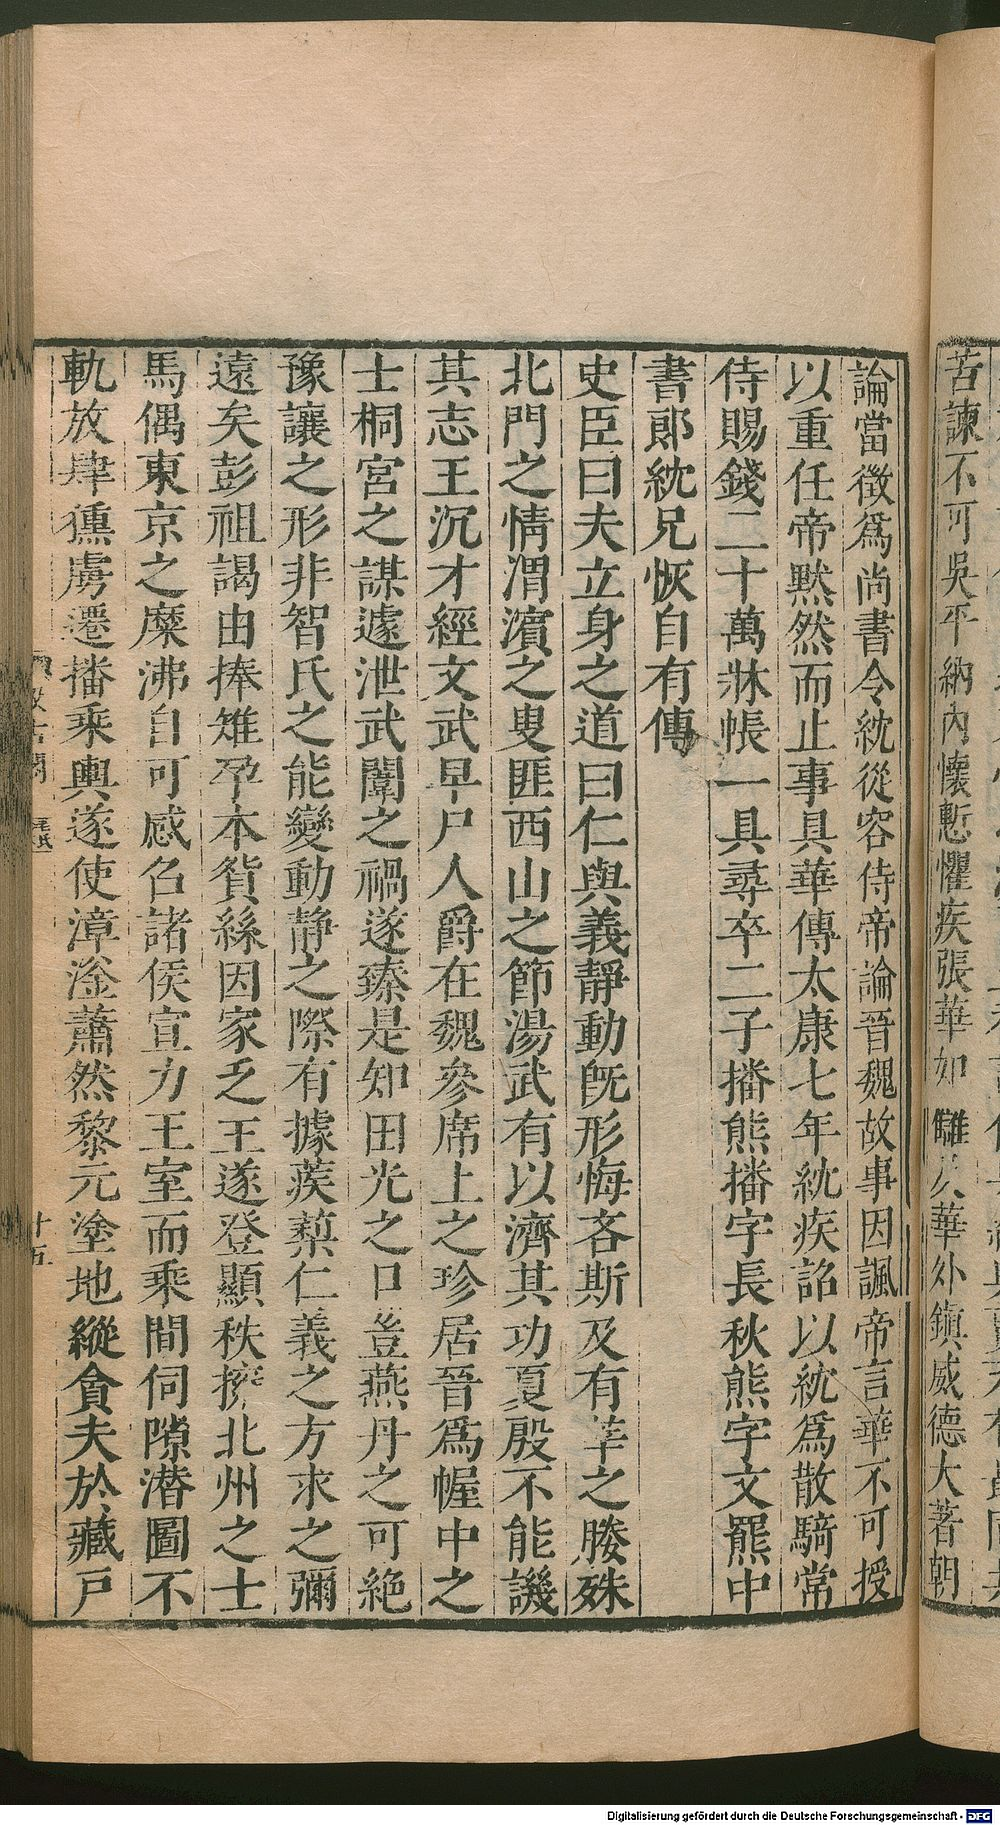 苦諫不可吳平納內懷慙懼疾張華如讎及華外鎮威德大著朝
論當徵爲尚書令紞從容侍帝論晉魏故事因諷帝言華不可授
以重任帝默然而止事具華傳太康七年紞疾詔以紞爲散騎常
侍賜錢二十萬牀帳一具尋卒二子播熊播字長秋熊字文羆中
書郎紞兄恢自有傳
史臣曰夫立身之道曰仁與義靜動旣形悔吝斯及有莘之媵殊
北門之情渭濱之叟匪西山之節湯武有以濟其功夏殷不能譏
其志王沉才經文武早尸人爵在魏參席上之珍居晉爲幄中之
士桐宮之謀遽泄武闈之禍遂臻是知田光之口豈燕丹之可絶
豫讓之形非智氏之能變動靜之際有據蒺蔾仁義之方求之彌
遠矣彭祖謁由捧雉孕本貨絲因家乏王遂登顯秩擁北州之士
馬偶東京之糜沸自可感召諸侯宣力王室而乘間伺隙潛圖不
軌放肆獯虜遷播乘輿遂使漳滏蕭然黎元塗地縱貪夫於藏戸
汲古閣
十五
Digitalisierung gefördert durch die Deutsche Forschungsgemeinschaft - DFG